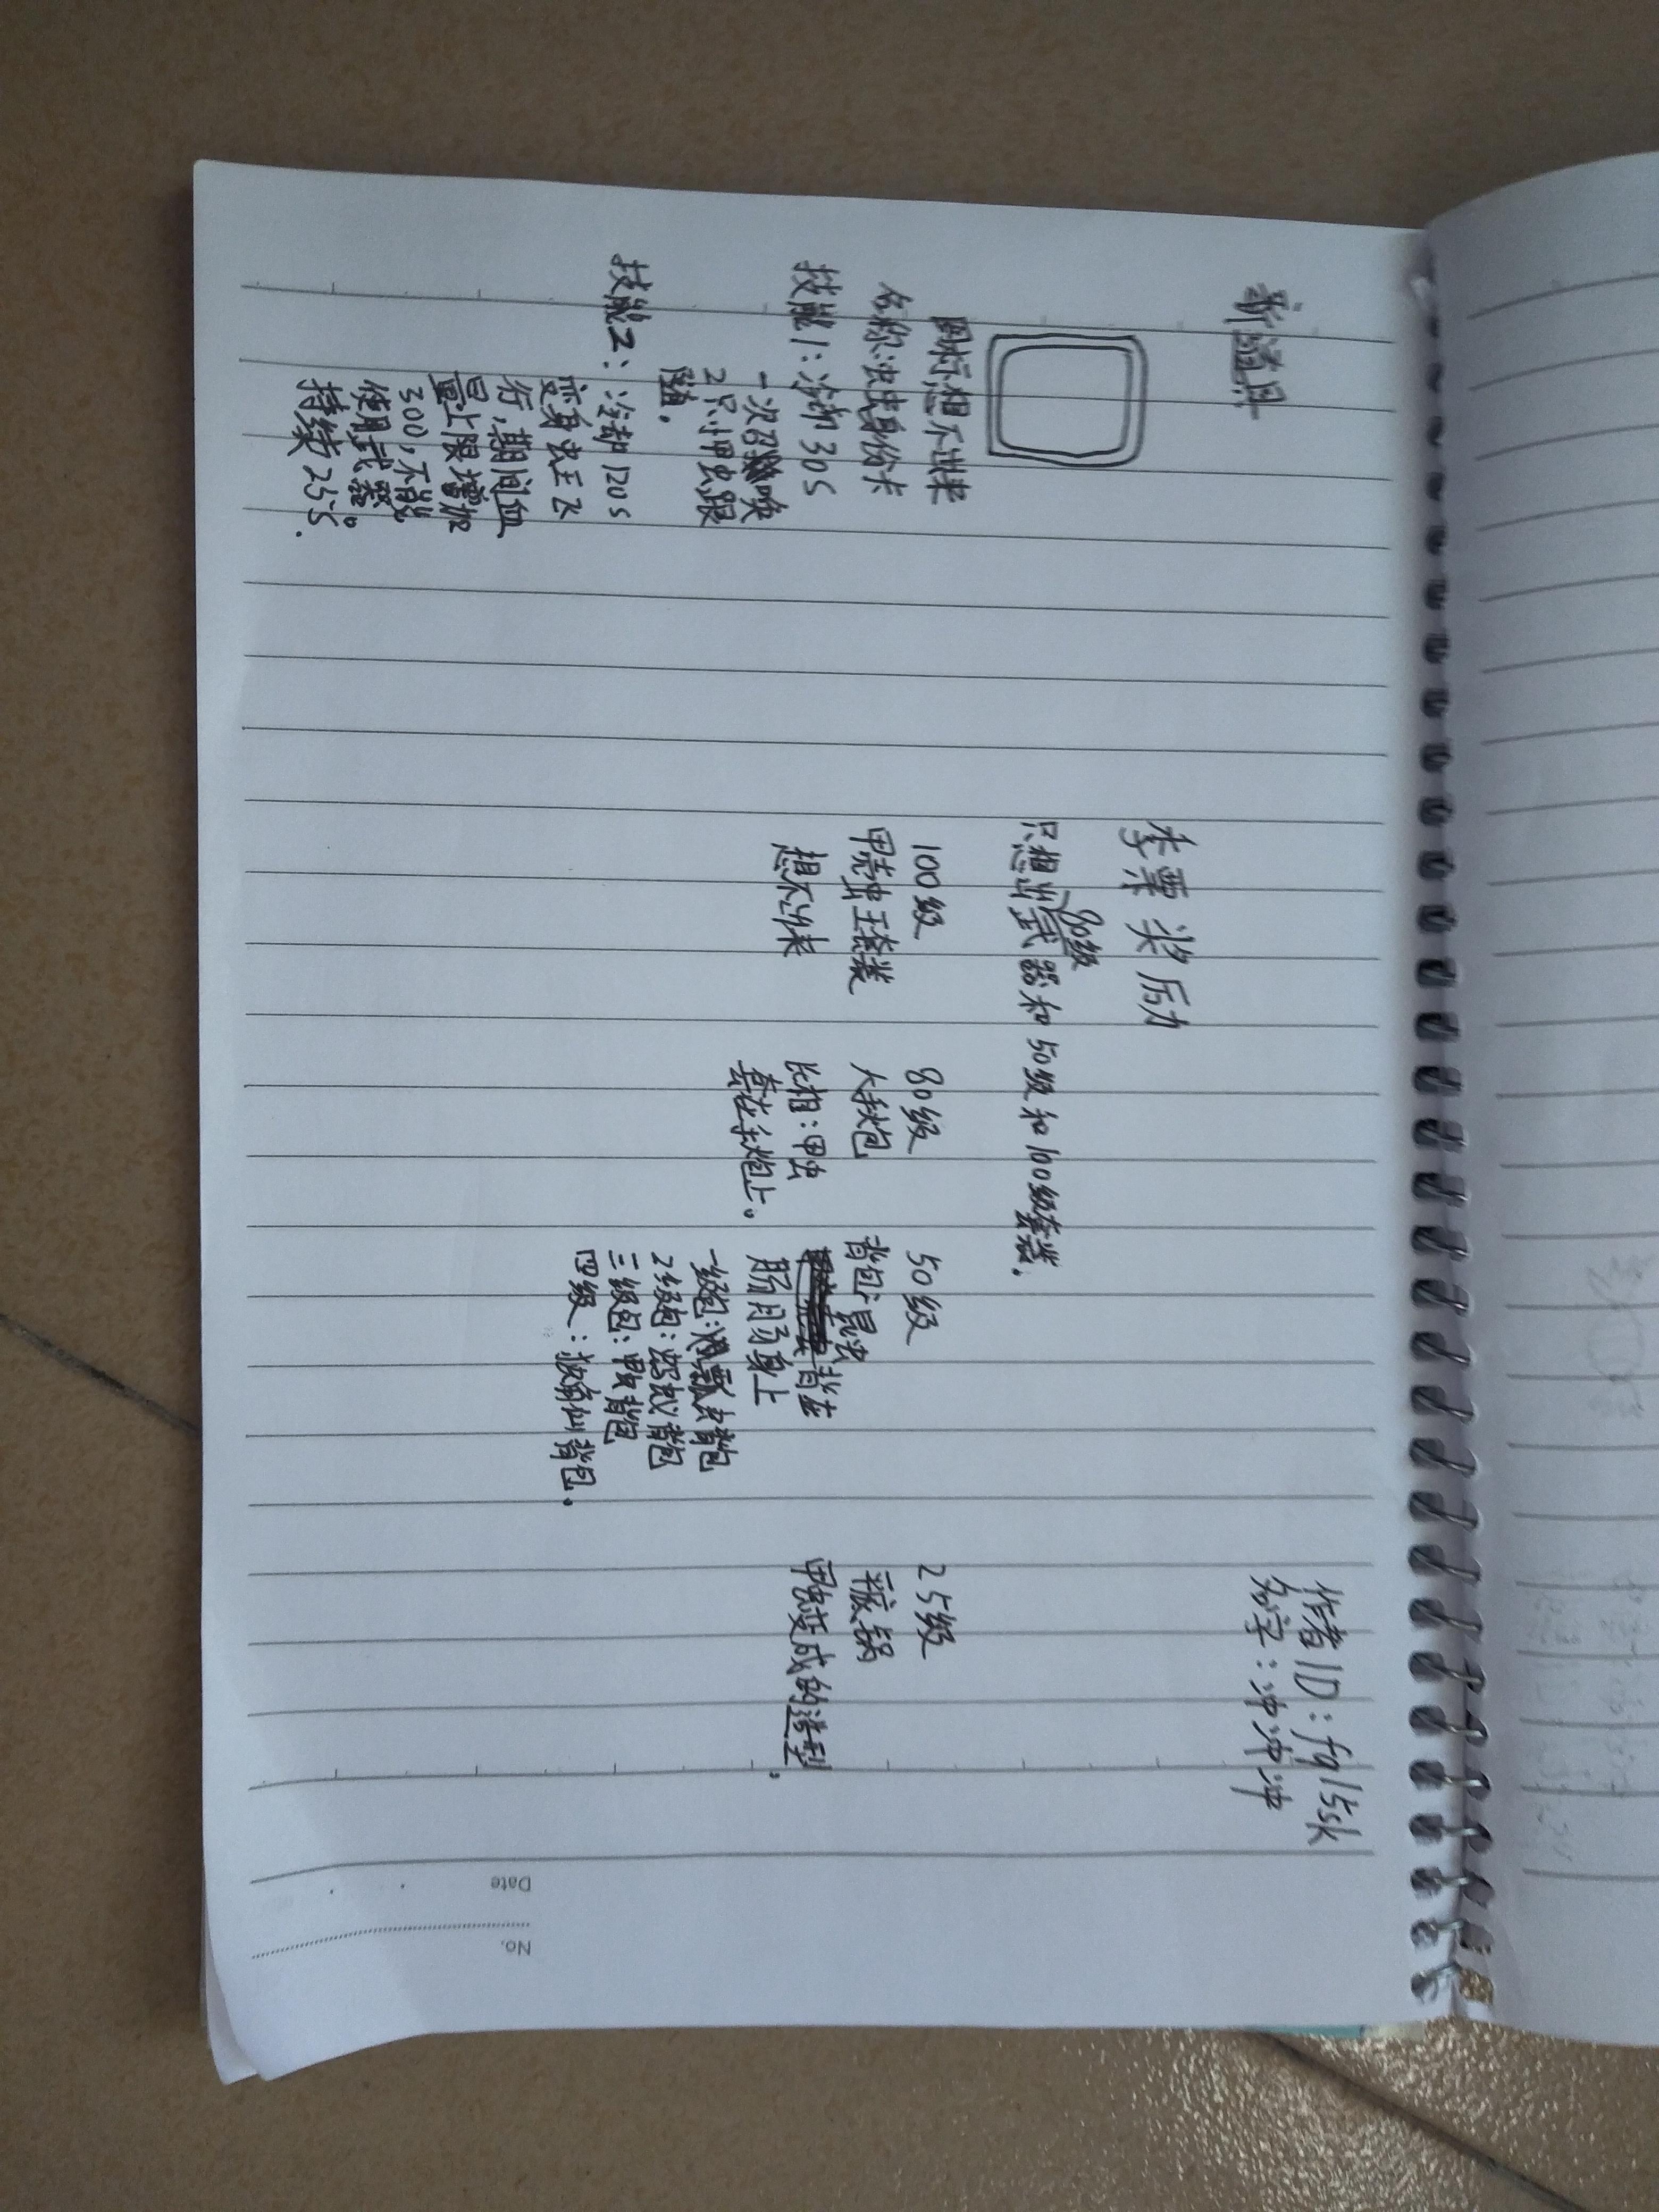 新道具
图标想不出来
名称:虫虫身份卡
技能1:冷却30s
一次召唤
2只小甲虫跟
随.
技能2:冷却120s
变身虫王飞
行,期间血
量上限增加
300,不能
使用武器。
持续25s.
季票奖历力
80级
只想出武器和50级和100级套装.
100级
甲壳虫王套装
想不出来
80级
大手包
长相:甲虫
套在手炮上。
50级
背包:昆虫
背在
肠肠身上
一级包:瓢虫背包
2级包:背包
三级包:甲虫背包
四级:独角仙背包.
25级
平底锅
甲虫变成的造型.
作者ID:fq15sk
名字:冲冲冲
Date
No.